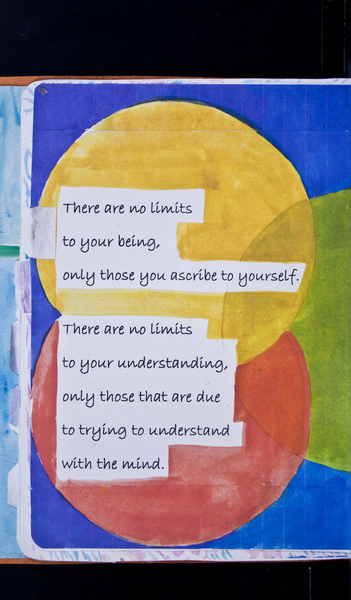 There are no limits
to your being,
only those you ascribe to yourself.
There are no limits
to your understanding,
only those that are due
to trying to understand
with the mind.